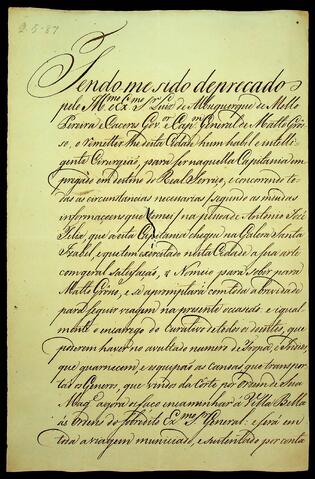 2-5-87
Tendo me sido deprecado
pelo Ill.mo e Ex.mo S.r Luis de Albuquerque de Mello
Pereira e Caceres Gov.or e Cap.am General de Matto Gros-
so, o remetter lhe desta Cidade hum habil e intelli-
gente Cirurgiaõ, para ser naquella Capitania em-
pregado em destino do Real Serviço, e concorrendo to-
das as circunstancias necessarias (segundo as
informaçoens que tomei) na pessoa de Antonio José
Felix, que a esta Capitania chegou na Galera Santa
Izabel, e que tem exercitado nesta Cidade a sua arte
com geral satisfaçaõ, o Nomeio para sobir para
Matto Grosso, e se apromptará com toda a brevidade
para seguir viagem na presente occasiaõ: e igual-
mente o encarrego do Curativo de todos os doentes, que
poderem haver no avultado numero de Tropa, e Indios,
que guarnecem, e equipaõ as canoas que transpor-
taõ os Generos, que vindos da Corte, por ordem de Sua
Mag.e agora os faço encaminhar á Villa Bella
ás ordens do sobredito Ex.mo S.r General: e será em
toda a viagem municiado, e sustentado por conta